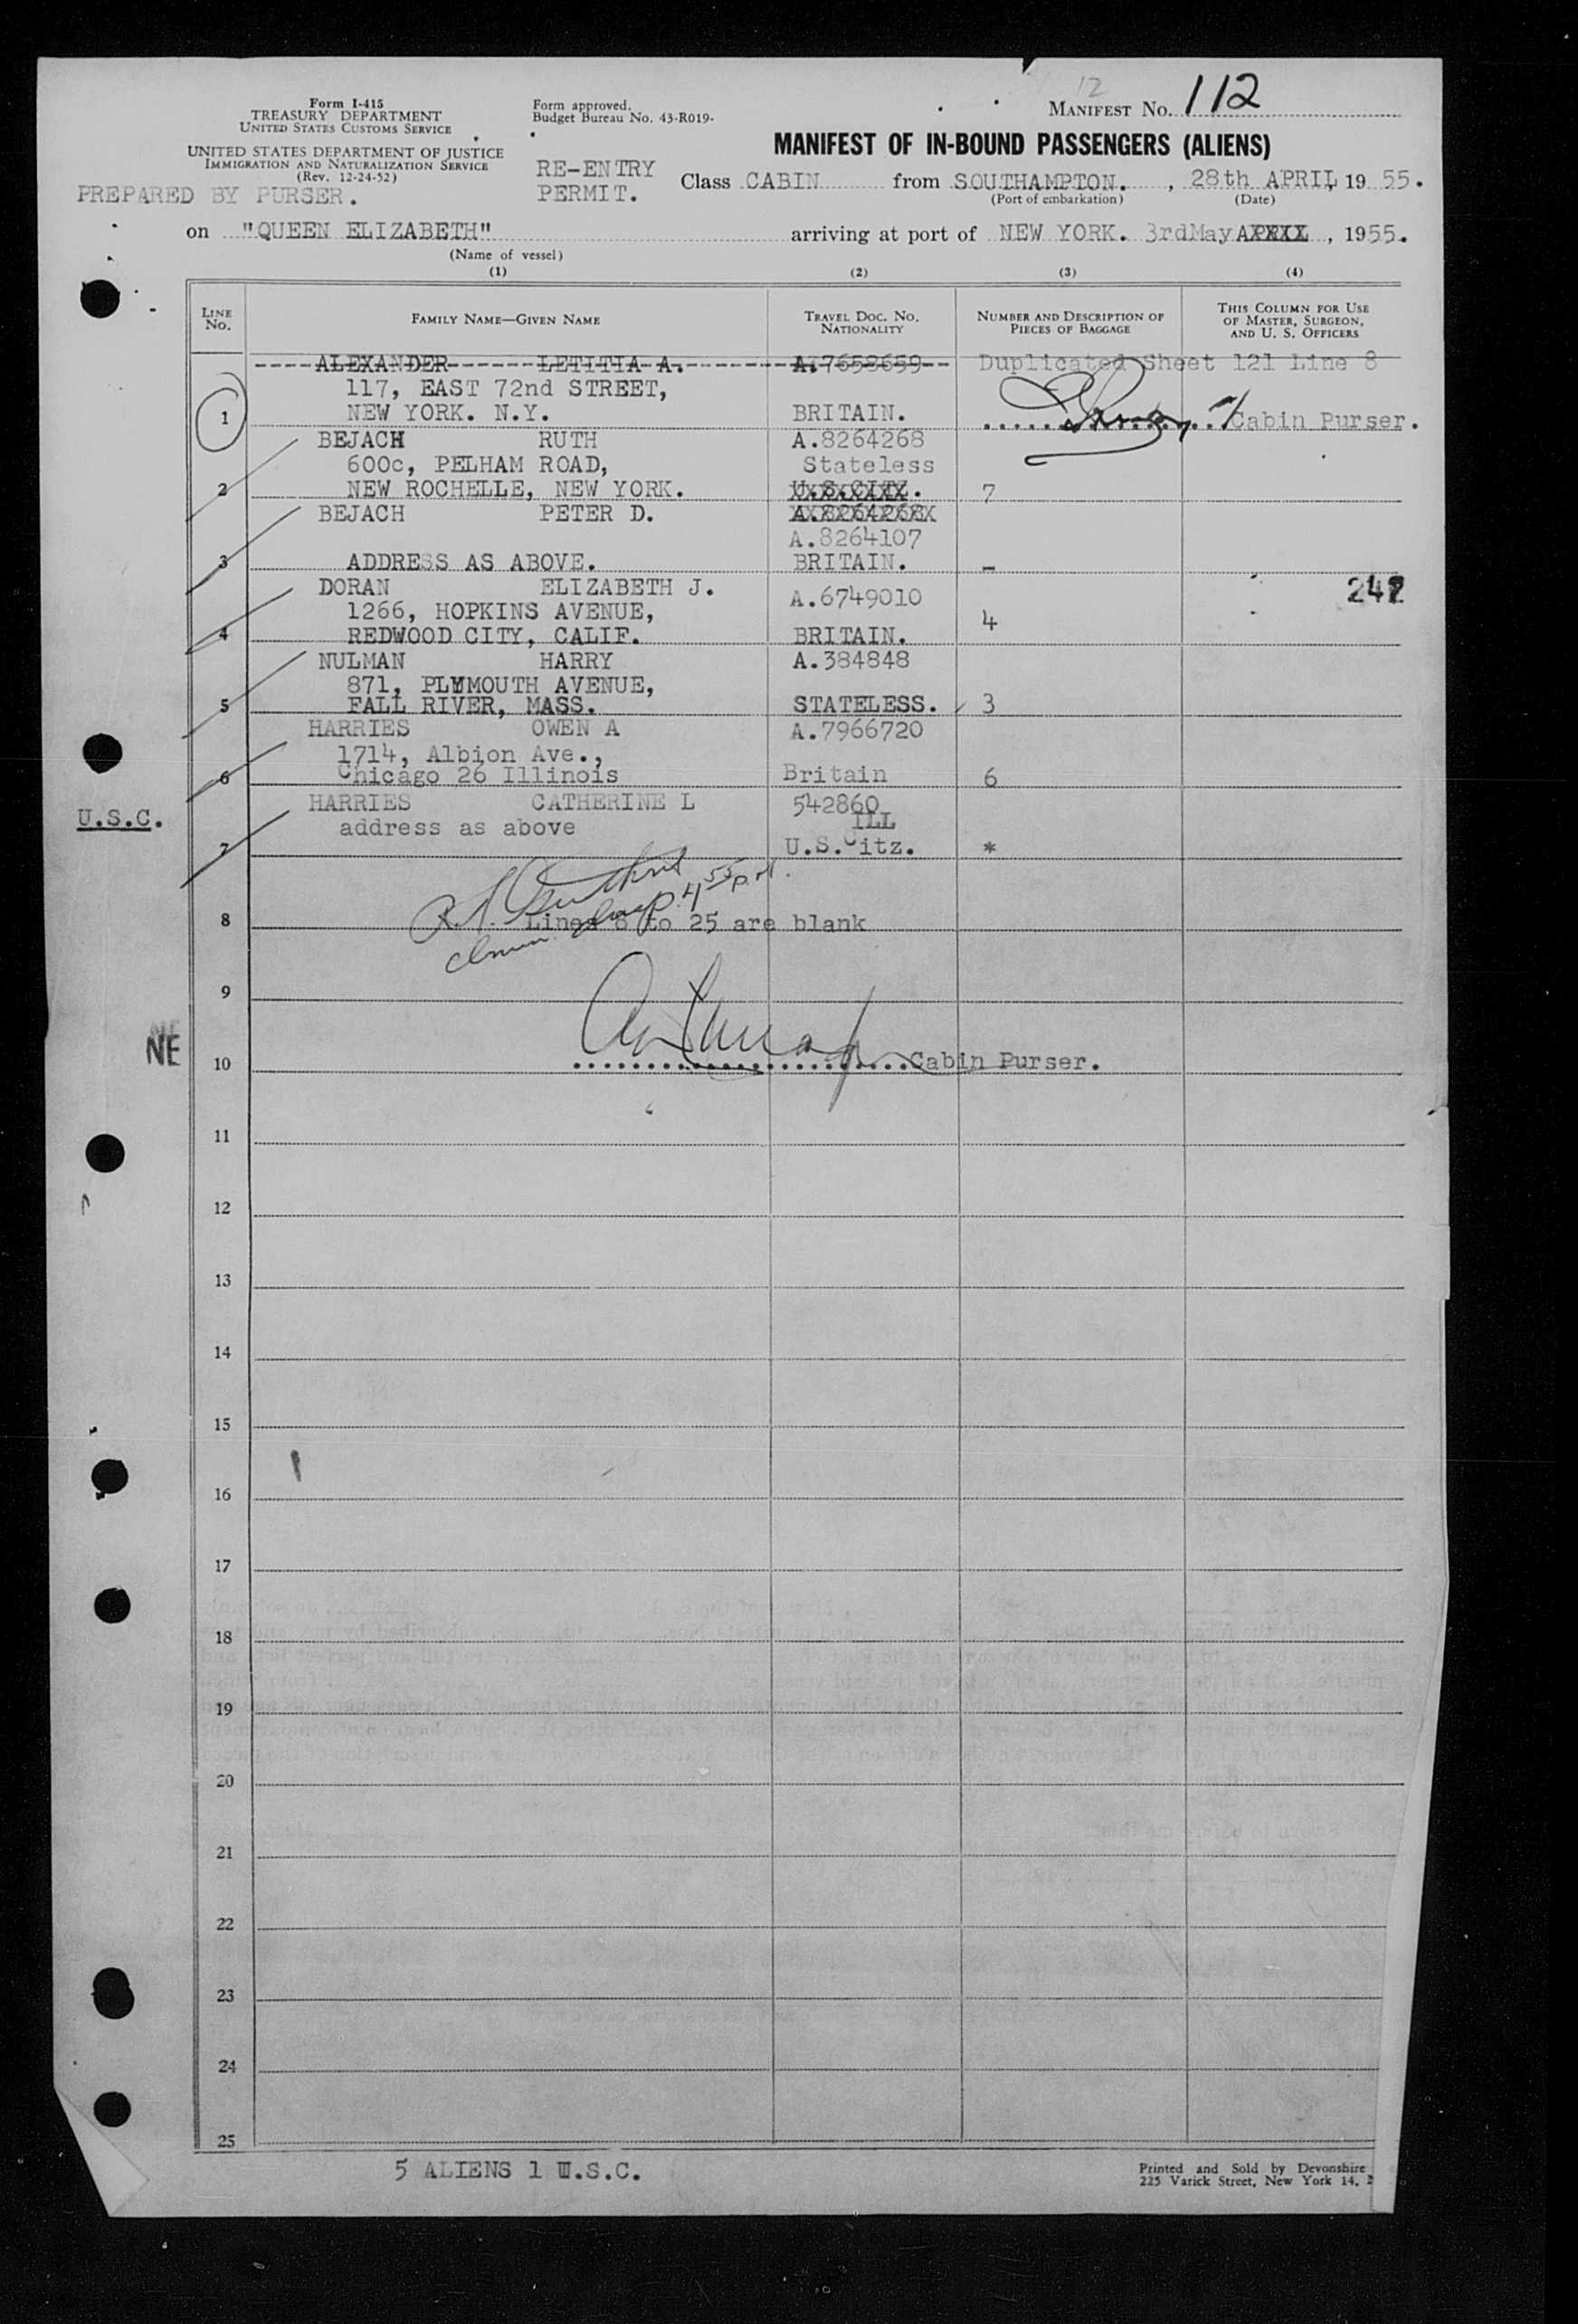 12
Form I-415
TREASURY DEPARTMENT
UNITED STATES CUSTOMS SERVICE
UNITED STATES DEPARTMENT OF JUSTICE
IMMIGRATION AND NATURALIZATION SERVICE
(Rev. 12-24-52)
PREPARED BY PURSER.
Form approved.
Budget Bureau No. 43-R019-
RE-ENTRY
PERMIT.
MANIFEST No. 112
MANIFEST OF IN-BOUND PASSENGERS (ALIENS)
Class CABIN from SOUTHAMPTON. , 28th APRIL, 19 55.
(Port of embarkation) (Date)
on "QUEEN ELIZABETH" arriving at port of NEW YORK. 3rdMay AXXXX , 1955.
(Name of vessel)
(1) (2) (3) (4)
LINE No. FAMILY NAME—GIVEN NAME TRAVEL DOC. NO. NATIONALITY NUMBER AND DESCRIPTION OF PIECES OF BAGGAGE THIS COLUMN FOR USE OF MASTER, SURGEON, AND U. S. OFFICERS
----ALEXANDER------LETITIA A.-------A.7658659-- Duplicated Sheet 121 Line 8
117, EAST 72nd STREET,
1 NEW YORK. N.Y. BRITAIN. Cabin Purser.
BEJACH RUTH A.8264268
600c, PELHAM ROAD, Stateless
2 NEW ROCHELLE, NEW YORK. U.S.CITZ. 7
BEJACH PETER D. A.8264268
A.8264107
3 ADDRESS AS ABOVE. BRITAIN. -
DORAN ELIZABETH J. A.6749010 242
1266, HOPKINS AVENUE, 4
4 REDWOOD CITY, CALIF. BRITAIN.
NULMAN HARRY A.384848
871, PLYMOUTH AVENUE,
5 FALL RIVER, MASS. STATELESS. 3
HARRIES OWEN A A.7966720
1714, Albion Ave.,
6 Chicago 26 Illinois Britain 6
HARRIES CATHERINE L 542860
U.S.C. address as above ILL
7 U.S.Citz. *
4 55 p.m.
8 Lines 8 to 25 are blank
9
NE
10 Cabin Purser.
11
12
13
14
15
16
17
18
19
20
21
22
23
24
25
5 ALIENS 1 U.S.C.
Printed and Sold by Devonshire
225 Varick Street, New York 14,